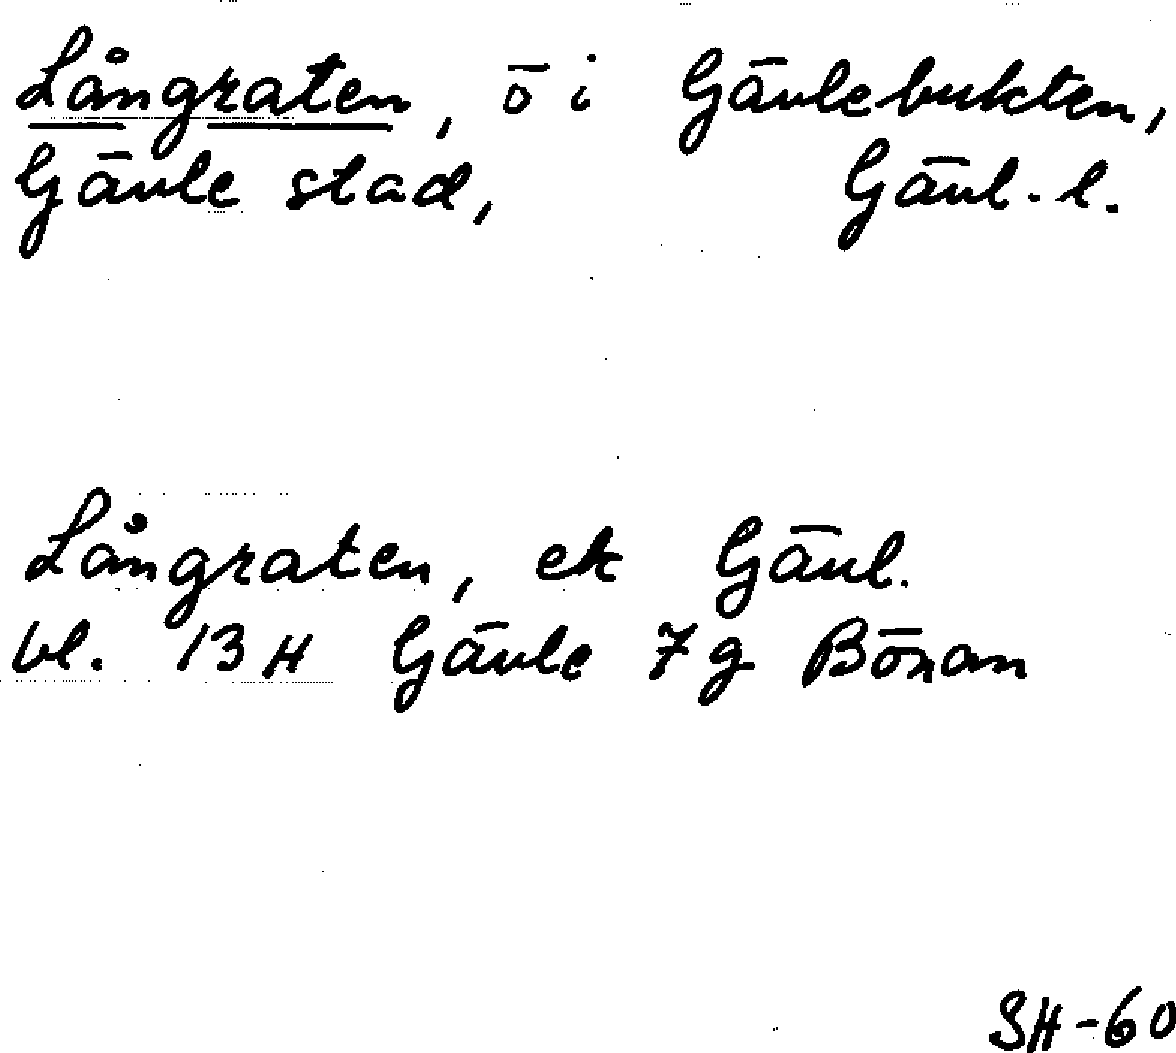 Långraten, ö i Gävlebukten,
Gävle stad, Gävl. l.
Långraten, ek Gävl.
bl. 13 H Gävle 7 g Bönan
SH-60